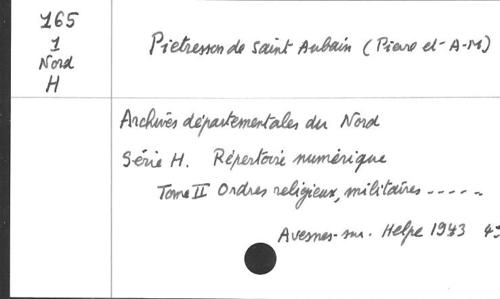 165
1
Nord
H
Pietresson de Saint Aubain (Pierre et A-M)
Archives départementales du Nord
Série H. Répertoire numérique
Tome II Ordres religieux, militaires -----
Avesnes-sur-Helpe 1943